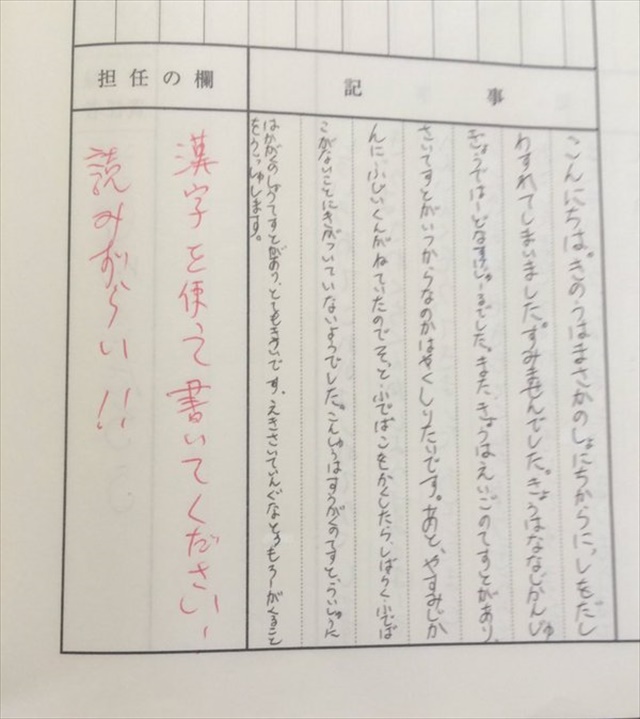 記事
こんにちは。きのうはまさかのしょにちからにっしをだし
わすれてしまいました。すみませんでした。きょうはななじかんじゅ
ぎょうではーどなすけじゅーるでした。また、きょうはえいごのてすとがあり、
さいてすとがいつからなのかはやくしりたいです。あと、やすみじか
んにふじいくんがねていたのでそっとふでばこをかくしたら、しばらくふでば
こがないことにきがついていないようでした。こんしゅうはすうがくのてすと、らいしゅうに
はかがくのしょうてすとがあり、とてもきついです。えきさいてぃんぐなとぅもろーがくること
をうぃっしゅします。
担任の欄
漢字を使って書いてください、
読みずらい!!